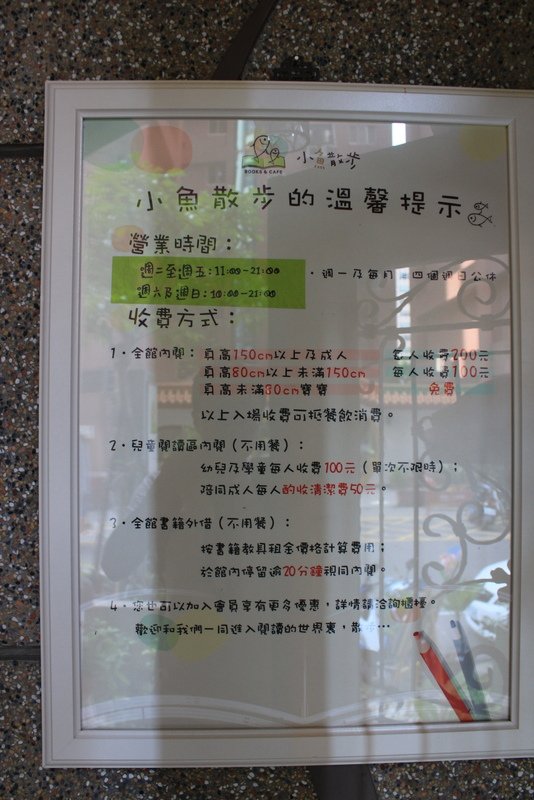 BOOKS & CAFE
小魚散步
小魚散步的溫馨提示
營業時間：
週二至週五：11:00~21:00
・週一及每月 四個週日公休
週六及週日：10:00~21:00
收費方式：
1・全館內閱：身高150cm以上及成人 每人收費200元
身高80cm以上未滿150cm 每人收費100元
身高未滿80cm寶寶 免費
以上入場收費可抵餐飲消費。
2・兒童閱讀區內閱（不用餐）：
幼兒及學童每人收費100元（單次不限時）；
陪同成人每人酌收清潔費50元。
3・全館書籍外借（不用餐）：
按書籍教具租金價格計算費用；
於館內停留逾20分鐘視同內閱。
4・您也可以加入會員享有更多優惠，詳情請洽詢櫃檯。
歡迎和我們一同進入閱讀的世界裏，散步…